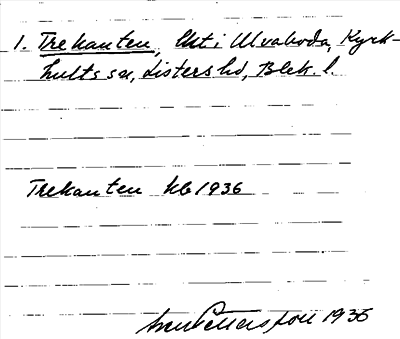 1. Trekanten, lht i Ulvaboda, Kyrk-
hults sn, Listers hd, Blek. l.
Trekanten kb 1936
Pettersson 1936